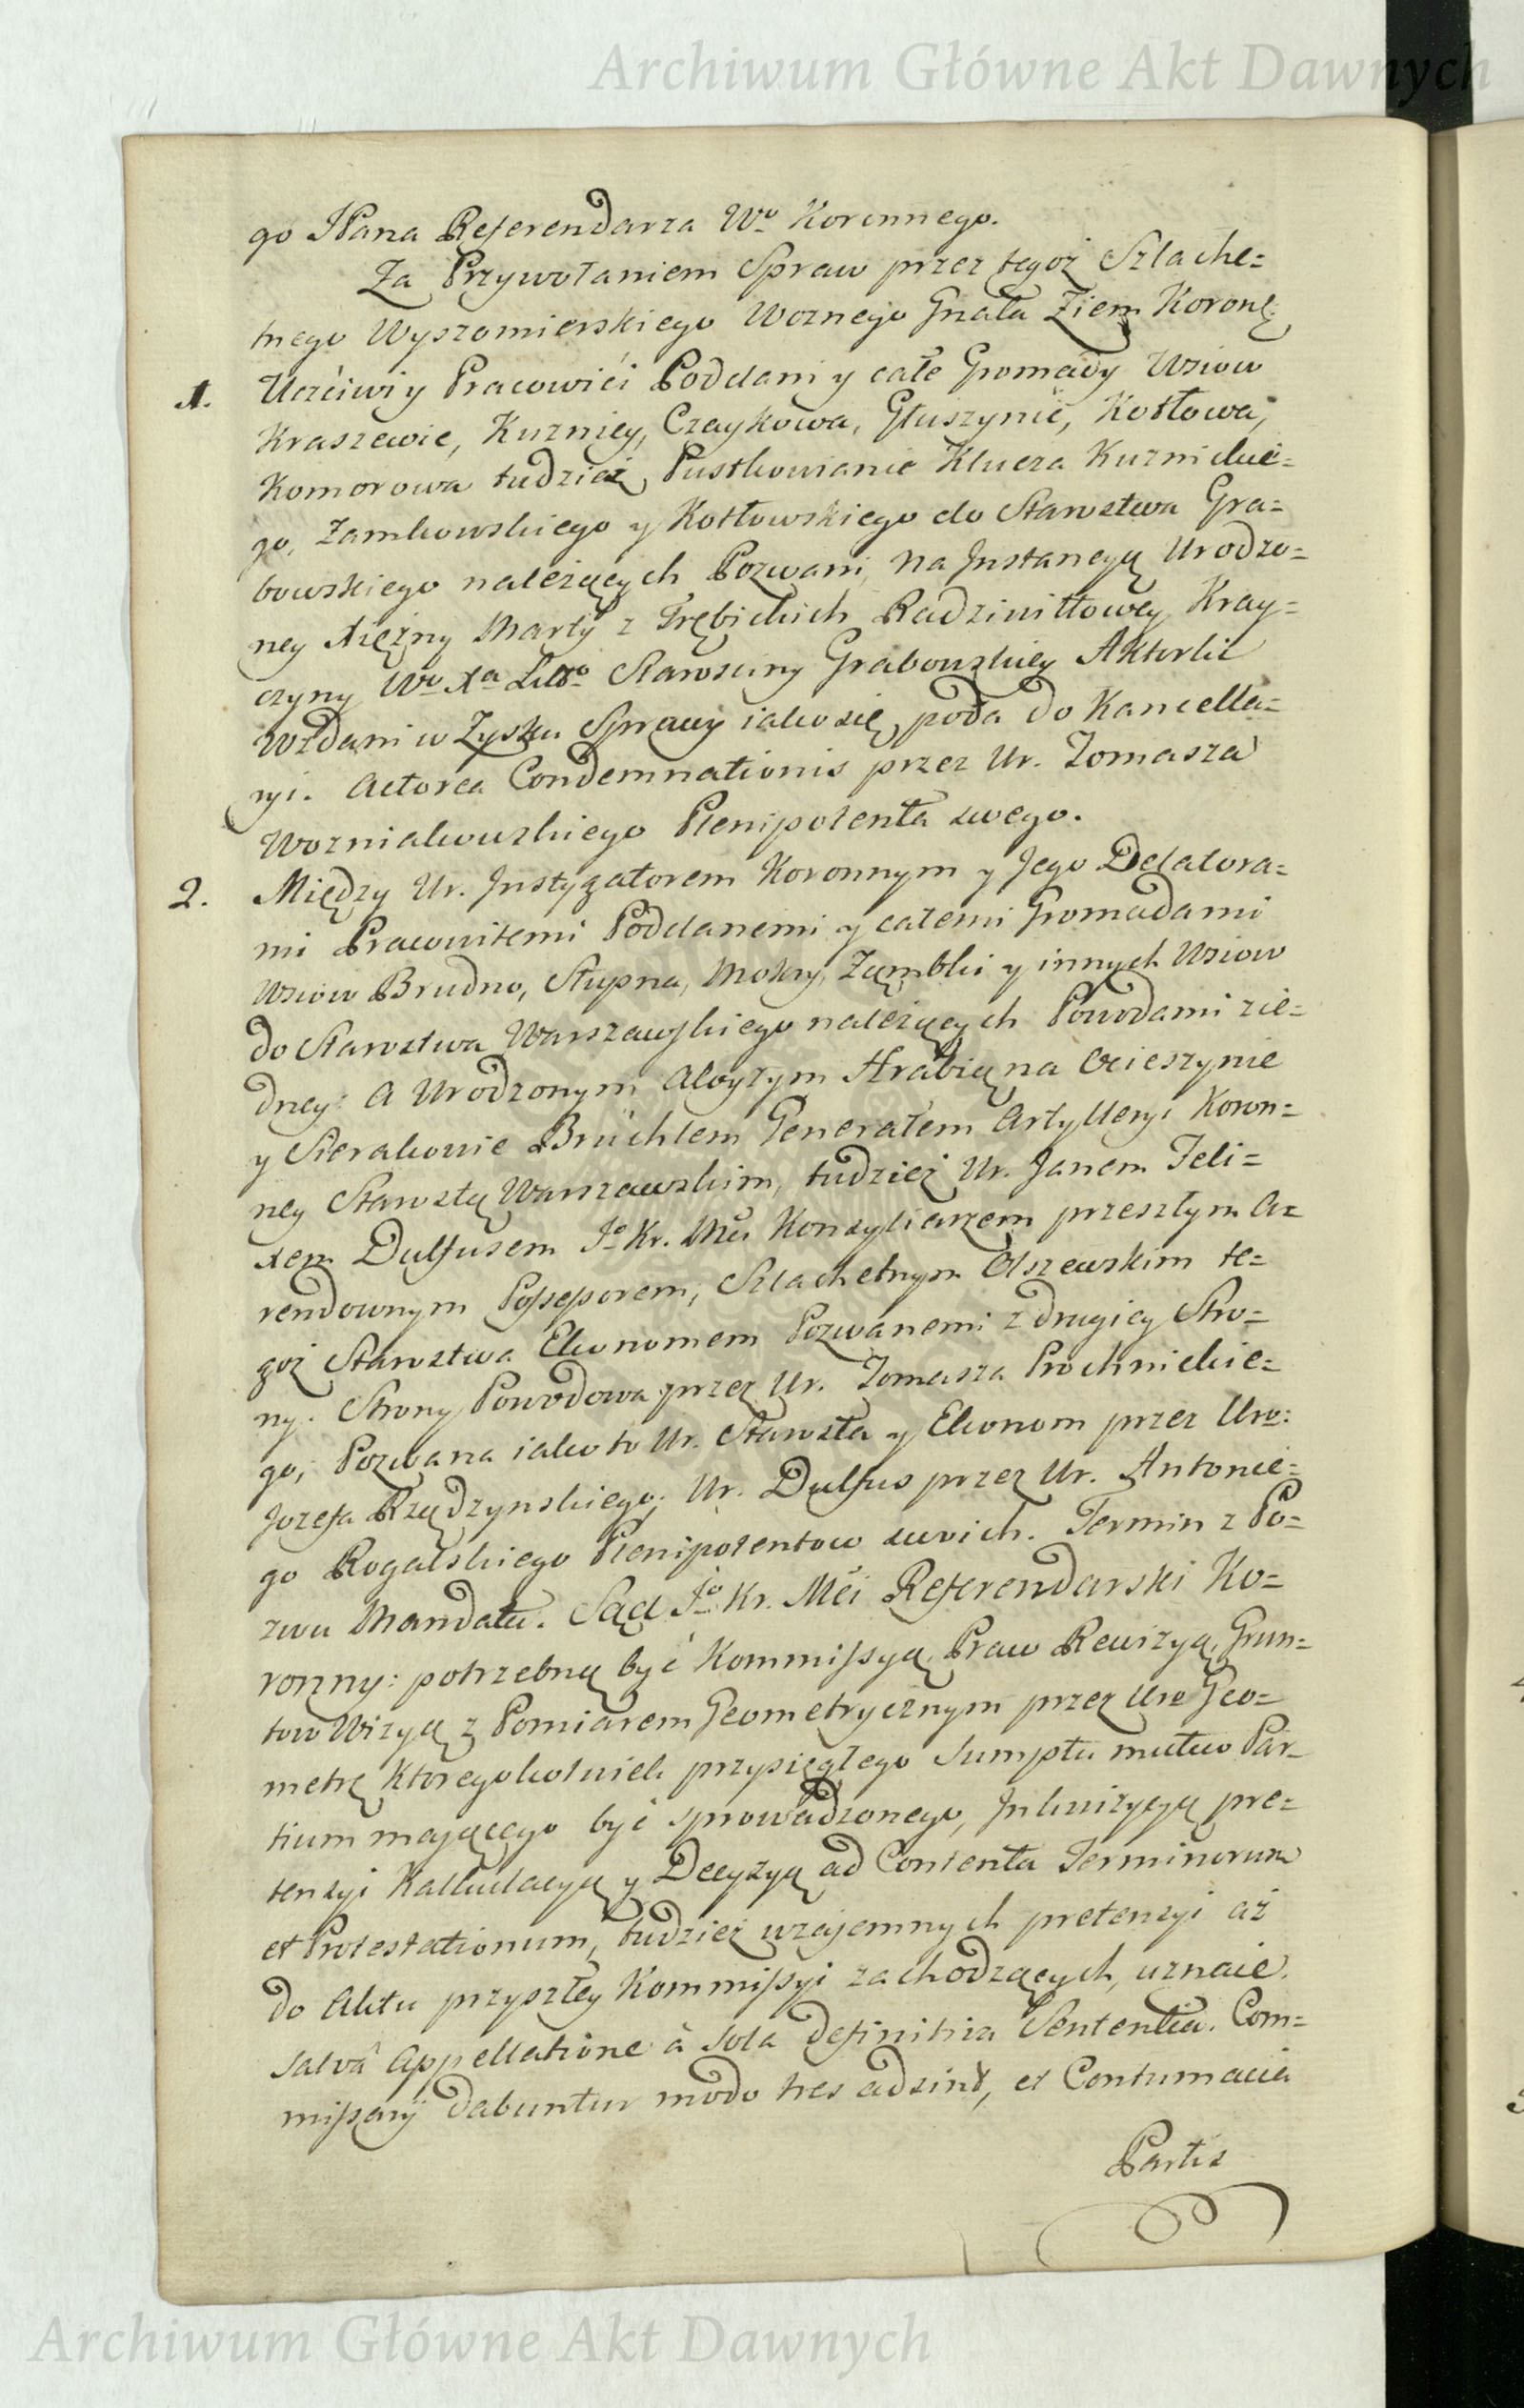 Archiwum Główne Akt Dawnych
go JPana Referendarza Wo Koronnego.
Za Przywołaniem Spraw przez tegoż Szlache=
tnego Wyszomierskiego Woznego Gnała Ziem Koronę:
1. Uczciwi y Pracowici Poddani y całe Gromady Wsiow
Kraszewic, Kuznicy, Czaykowa, Głuszynie, Kotłowa,
Komorowa tudzież Pustkowianie Klucza Kuznickie=
go, Zamkowskiego y Kotłowskiego do Starostwa Gra=
bowskiego należących Pozwani, na Jnstancyą Urodzo=
ney Xiężny Marty z Trębickich Radziwiłłowey Kray=
czyny Wo Xa Litto Starosciny Grabowskiey Aktorki
Wzdani w Zysku Sprawy iako się poda do Kancella=
ryi. Actorea Condemnationis przez Ur. Tomasza
Wozniakowskiego Plenipotenta swego.
2. Między Ur. Jnstygatorem Koronnym y Jego Delatora=
mi Pracowitemi Poddanemi y całemi Gromadami
Wsiow Brudno, Słupna, Mokry, Ząmbki y innych Wsiow
do Starostwa Warszawskiego należących Powodami z ie=
dney: A Urodzonym Aloyzym Hrabią na Ocieszynie
y Sierakowie Brüchlem Generałem Artylleryi Koron=
ney Starostą Warszawskim, tudzież Ur. Janem Feli=
xem Dulfusem Jo Kr. Mci Konsyliarzem przeszłym A=
rendownym Possessorem, Szlachetnym Olszewskim te=
goż Starostwa Ekonomem Pozwanemi z drugiey Stro=
ny. Strony Powodowa przez Ur. Tomasza Prochnickie=
go, Pozwana iako to Ur. Starosta y Ekonom przez Uro:
Jozefa Rządzynskiego; Ur. Dulfus przez Ur. Antonie=
go Rogalskiego Plenipotentow swoich. Termin z Po=
zwu Mandatu. Sąd Jo Kr. Mci Referendarski Ko=
ronny: potrzebną być Kommissyą, Praw Rewizyą, Grun=
tow Wizyą z Pomiarem Geometrycznym przez Uro Geo=
metrę Ktoregokolwiek przysięgłego Sumptu mutuo Par=
tium mającego być sprowadzonego, Jnkwizycyą pre=
tensyi Kalkulacyą y Decyzyą ad Contenta Terminorum
et Protestationum, tudzież wzajemnych pretensyi aż
do Aktu przyszłey Kommissyi zachodzących, uznaie.
Salvâ Appellatione à sola definitiva Sententia. Com=
missarÿ dabuntur modo tres adsint, et Contumacia
Partis
Archiwum Główne Akt Dawnych